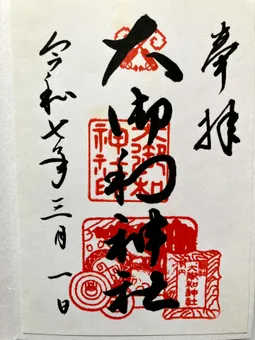 奉拝
大御和神社
令和七年三月一日
大御和
神社印